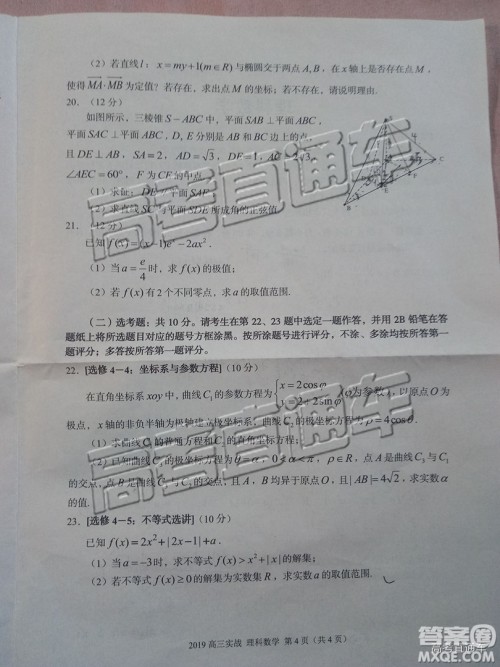 （2）若直线 l：x = my+1(m∈R) 与椭圆交于两点 A, B，在 x 轴上是否存在点 M，
使得 MA·MB 为定值？若存在，求出点 M 的坐标；若不存在，请说明理由.
20.（12 分）
如图所示，三棱锥 S－ABC 中，平面 SAB⊥平面 ABC，
平面 SAC⊥平面 ABC，D, E 分别是 AB 和 BC 边上的点，
且 DE⊥AB，SA=2，AD=√3，DE=1，AC=2√3，
∠AEC=60°，F 为 CE 的中点
（1）求证：DE 平面 SAF
（2）求直线 SC 与平面 SDE 所成角的正弦值
21.（12 分）
已知 f(x)=(x－1)e^x－2ax².
（1）当 a=e/4 时，求 f(x) 的极值；
（2）若 f(x) 有 2 个不同零点，求 a 的取值范围.
（二）选考题：共 10 分。请考生在第 22、23 题中选定一题作答，并用 2B 铅笔在答
题纸上将所选题目对应的题号方框涂黑。按所涂题号进行评分，不涂、多涂均按所答第一
题评分；多答按所答第一题评分。
22. [选修 4－4：坐标系与参数方程]（10 分）
在直角坐标系 xoy 中，曲线 C₁ 的参数方程为 {x=2cosφ y=2+2sinφ（φ为参数），以原点 O 为
极点，x 轴的非负半轴为极轴建立极坐标系，曲线 C₂ 的极坐标方程为 ρ=4cosθ.
（1）求曲线 C₁ 的普通方程和 C₂ 的直角坐标方程；
（2）已知曲线 C₃ 的极坐标方程为 θ=α，0<α<π，ρ∈R，点 A 是曲线 C₃ 与 C₁
的交点，点 B 是曲线 C₃ 与 C₂ 的交点，且 A、B 均异于原点 O，且 |AB|=4√2，求实数 α
的值.
23. [选修 4－5：不等式选讲]（10 分）
已知 f(x)=2x²+|2x－1|+a.
（1）当 a=－3 时，求不等式 f(x)>x²+|x| 的解集；
（2）若不等式 f(x)≥0 的解集为实数集 R，求实数 a 的取值范围.
2019 高三实战 理科数学 第 4 页（共 4 页）
高考直通车
高考直通车
高考直通车
答案圈